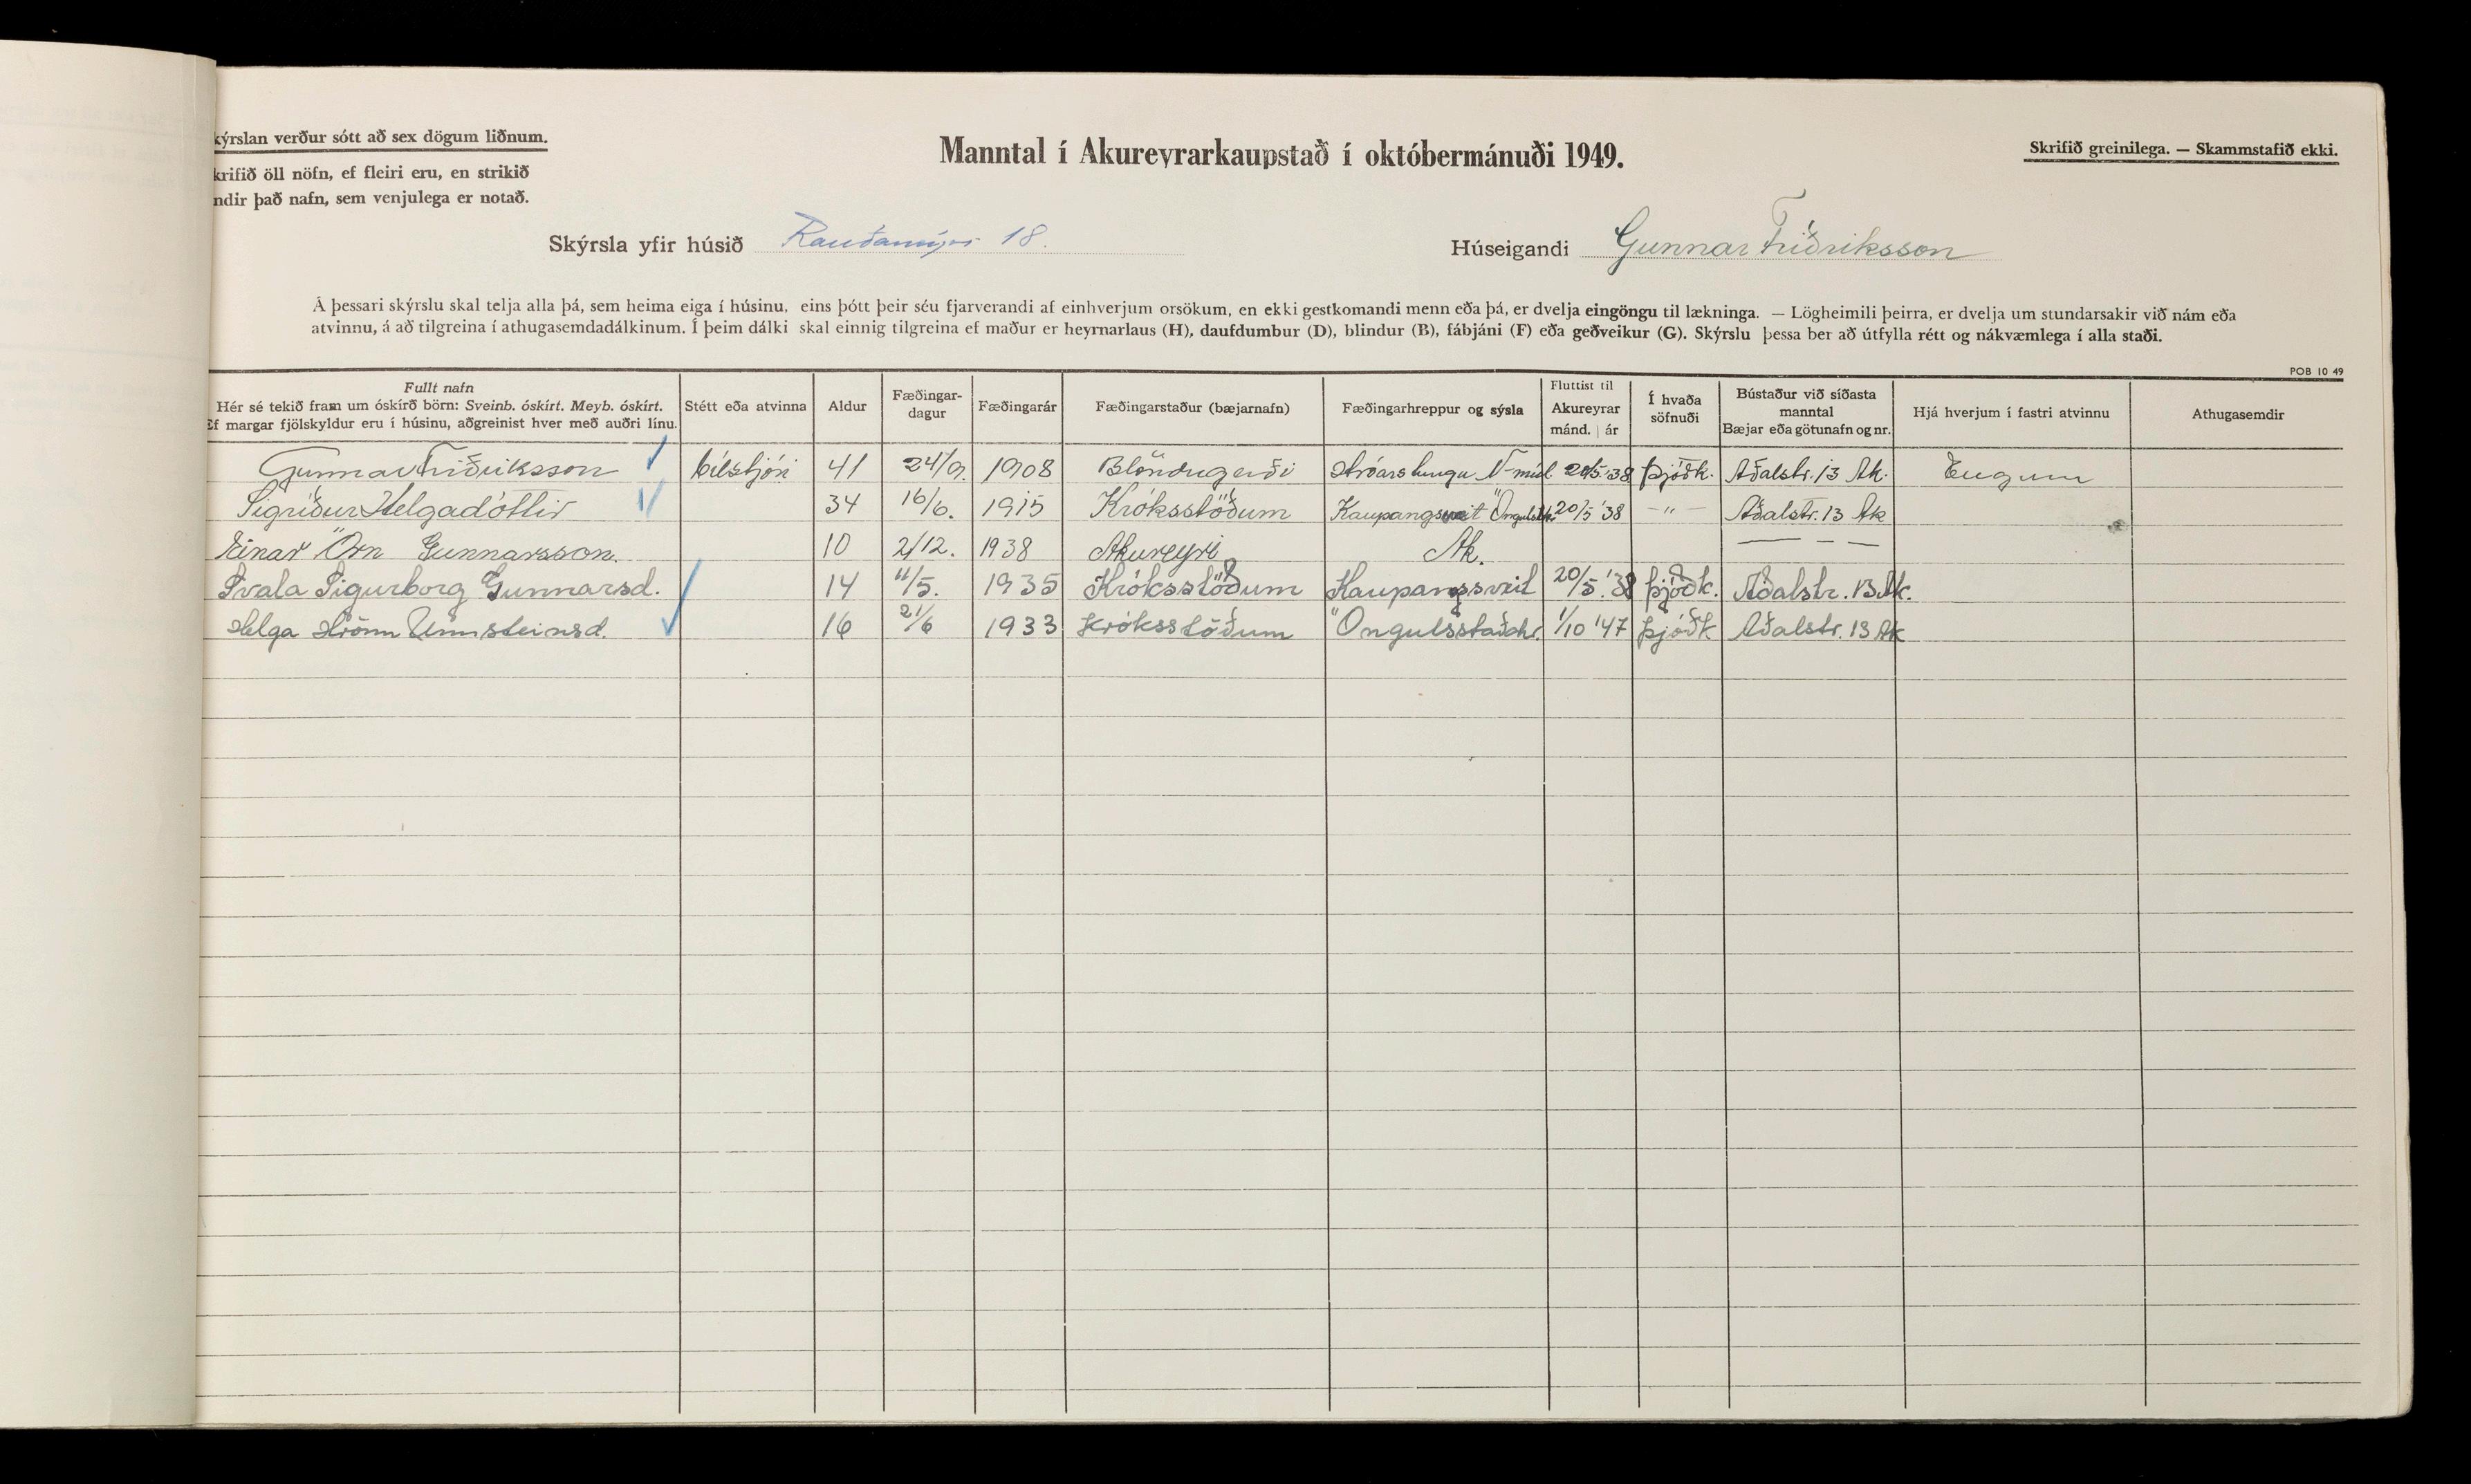 kýrslan verður sótt að sex dögum liðnum.
krifið öll nöfn, ef fleiri eru, en strikið
ndir það nafn, sem venjulega er notað.
Manntal í Akureyrarkaupstað í októbermánuði 1949.
Skrifið greinilega. — Skammstafið ekki.
Skýrsla yfir húsið Rauðamýri 18.
Húseigandi Gunnar Friðriksson
Á þessari skýrslu skal telja alla þá, sem heima eiga í húsinu, eins þótt þeir séu fjarverandi af einhverjum orsökum, en ekki gestkomandi menn eða þá, er dvelja eingöngu til lækninga. — Lögheimili þeirra, er dvelja um stundarsakir við nám eða
atvinnu, á að tilgreina í athugasemdadálkinum. Í þeim dálki skal einnig tilgreina ef maður er heyrnarlaus (H), daufdumbur (D), blindur (B), fábjáni (F) eða geðveikur (G). Skýrslu þessa ber að útfylla rétt og nákvæmlega í alla staði.
POB 10 49
Fullt nafn
Hér sé tekið fram um óskírð börn: Sveinb. óskírt. Meyb. óskírt.
Ef margar fjölskyldur eru í húsinu, aðgreinist hver með auðri línu.
Stétt eða atvinna
Aldur
Fæðingar-
dagur
Fæðingarár
Fæðingarstaður (bæjarnafn)
Fæðingarhreppur og sýsla
Fluttist til
Akureyrar
mánd. | ár
Í hvaða
söfnuði
Bústaður við síðasta
manntal
Bæjar eða götunafn og nr.
Hjá hverjum í fastri atvinnu
Athugasemdir
Gunnar Friðriksson bílstjóri 41 24/9. 1908 Blöndugerði Hróarstungu N-múl. 20/5.'38 þjóðk. Aðalstr. 13 Ak. Eugum
Sigríður Helgadóttir 34 16/6. 1915 Króksstöðum Kaupangsveit 20/5 '38 —"— Aðalstr. 13 Ak
Einar Örn Gunnarsson. 10 2/12. 1938 Akureyri Ak. — — —
Svala Sigurborg Gunnarsd. 14 11/5. 1935 Króksstöðum Kaupangssveit 20/5.'38 þjóðk. Aðalstr. 13 Ak.
Helga Hrönn Unnsteinsd. 16 21/6 1933 Króksstöðum Öngulsstaðahr. 1/10 '47 þjóðk Aðalstr. 13 Ak